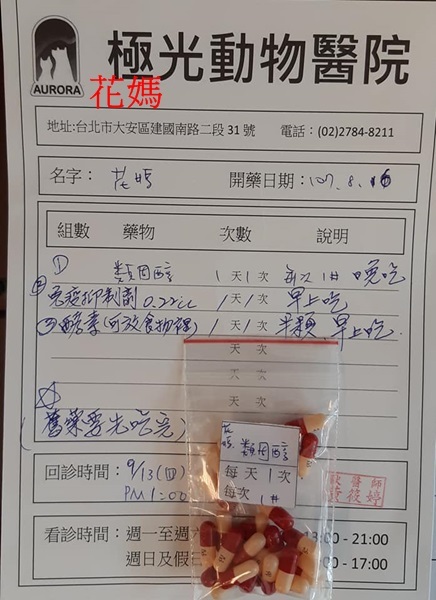 極光動物醫院
AURORA
花媽
地址:台北市大安區建國南路二段31號 電話:(02)2784-8211
名字: 花媽 開藥日期: 107.8.16
組數 藥物 次數 說明
① 類固醇 1天1次 每次1# 晚吃
② 免疫抑制劑 0.22cc 1天1次 早上吃
③ 酵素(可放食物裡) 1天1次 半顆 早上吃.
天 次
天 次
天 次
(舊藥要先吃完)
花媽
類固醇
每天1次
每次 1#
回診時間: 9/13(四)
PM 1:00
醫師
看診時間: 週一至週 13:00 - 21:00
週日及假 :00 - 17:00